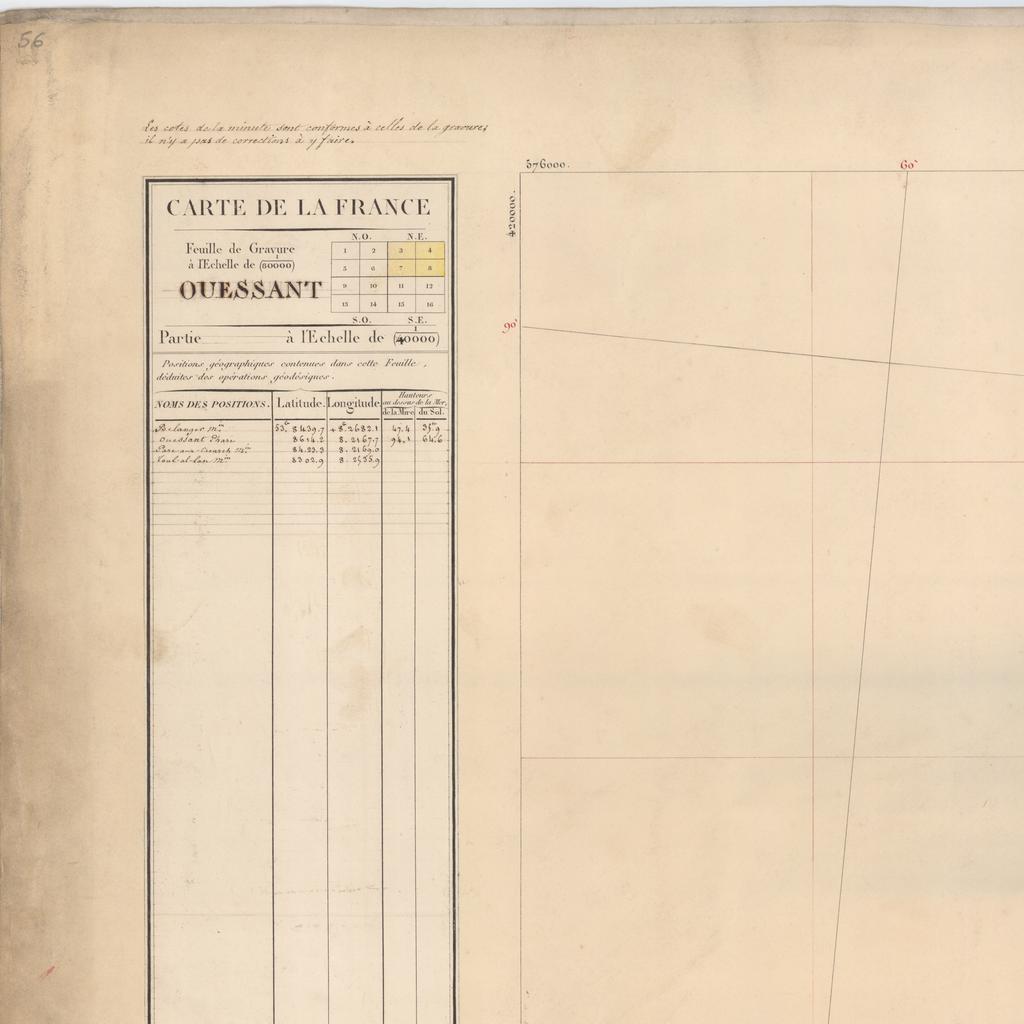 56
Les cotes de la minute sont conformes à celles de la gravure;
il n'y a pas de corrections à y faire.
576000.
60'
420000.
90'
CARTE DE LA FRANCE
Feuille de Gravure
à l'Echelle de (1/80000)
OUESSANT
N.O. N.E.
1 2 3 4
5 6 7 8
9 10 11 12
13 14 15 16
S.O. S.E.
Partie à l'Echelle de (1/40000)
Positions géographiques contenues dans cette Feuille,
déduites des opérations géodésiques.
NOMS DES POSITIONS. Latitude. Longitude Hauteurs au dessus de la Mer,
de la Mire du Sol.
Belanger m.in 53.G 8439.7 + 8.G 2682.1 47.4 35.9
Ouessant Phare 8614.2 8. 2167.7 94.1 64.6
m.in 8423.3 8. 2169.0
m.in 8302.9 8.